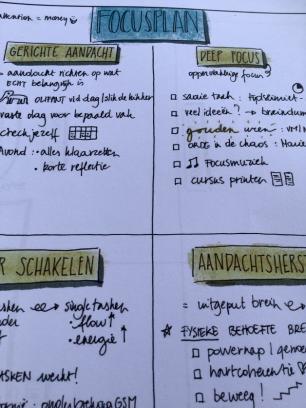 attention = money
FOCUSPLAN
GERICHTE AANDACHT
= aandacht richten op wat
ECHT belangrijk is
OUTPUT v/d dag / slik de kikker
vaste dag voor bepaald vak
check jezelf
Avond : • alles klaarzetten
• korte reflectie
DEEP FOCUS
oppervlakkige focus
saaie taak :
veel ideeën? → braindum
gouden uren :
in de chaos :
FOCUSMUZIEK
cursus printen
R SCHAKELEN
singletasken
flow ↑
energie ↑
ASKEN werkt!
GSM
AANDACHTSHERST
= uitgeput brein
FYSIEKE BEHOEFTE BRE
powernap /
hartcoherentie
beweeg!